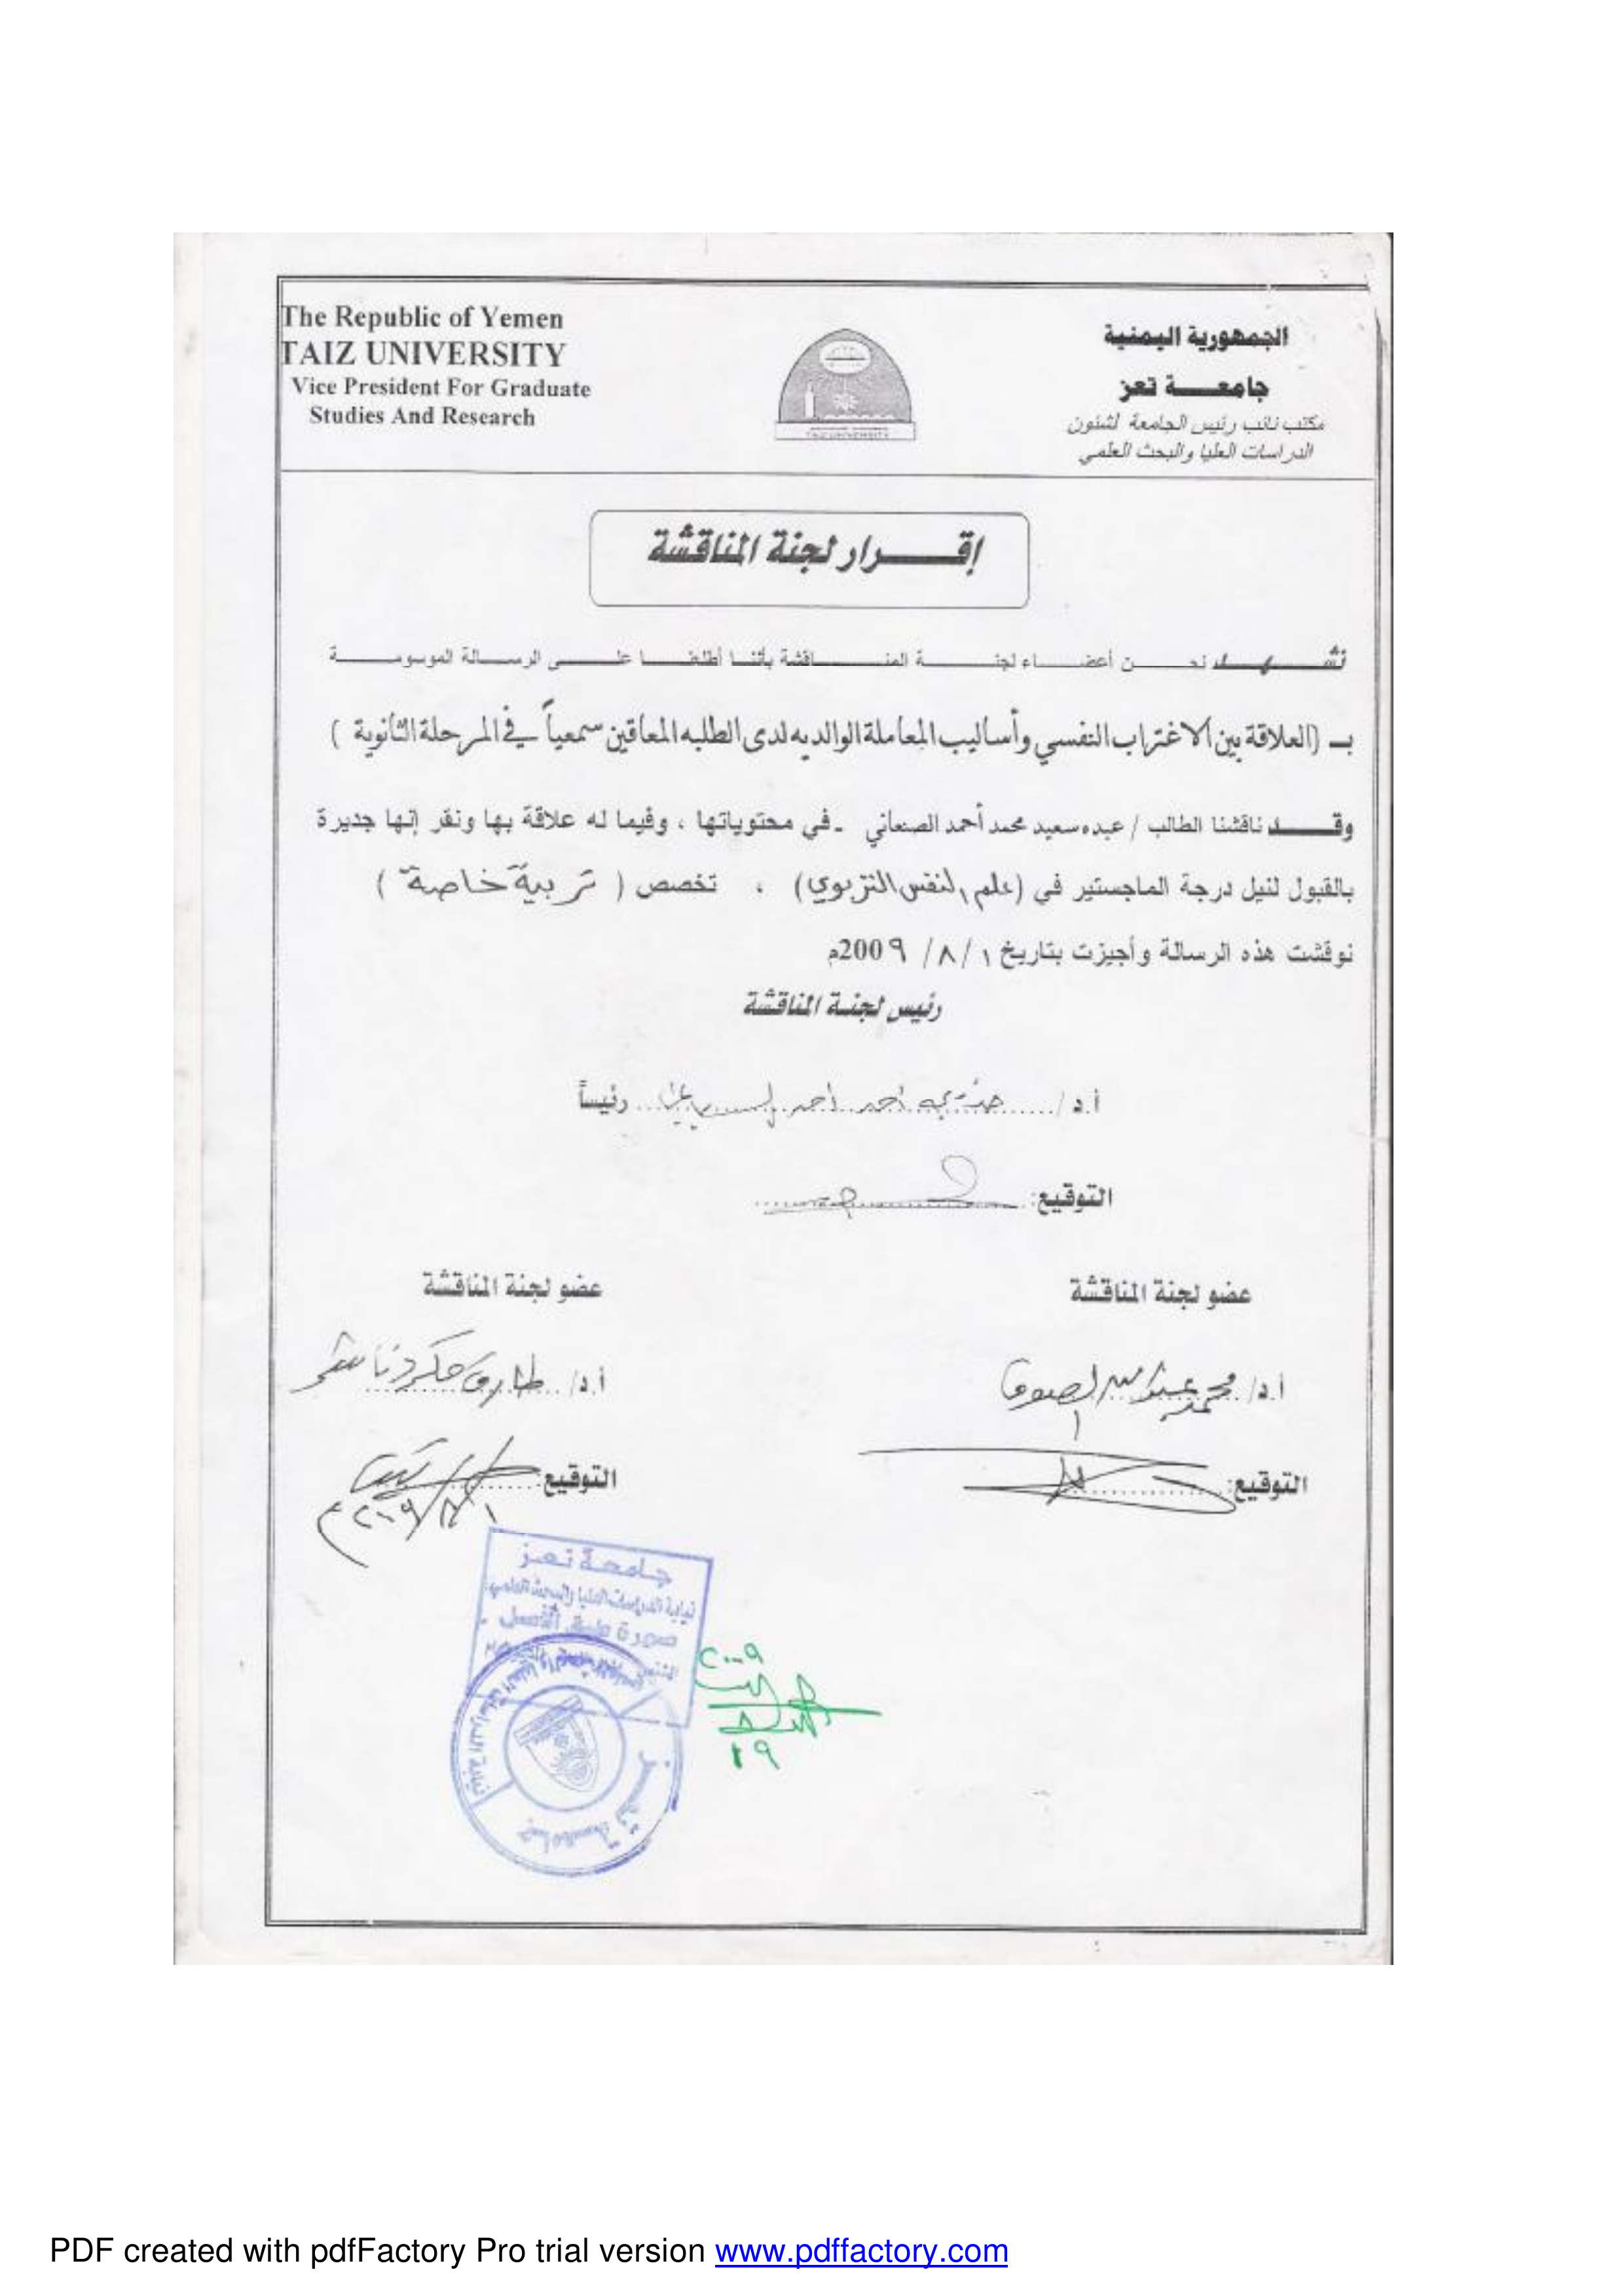 The Republic of Yemen
TAIZ UNIVERSITY
Vice President For Graduate
Studies And Research
TAIZ UNIVERSITY
الجمهورية اليمنية
جامعــــة تعز
مكتب نائب رئيس الجامعة لشئون
الدراسات العليا والبحث العلمي
إقــــرار لجنة المناقشة
نشـــهـــد نحـــن أعضـــاء لجنـــة المنـــاقشة بأننـــا أطلعنـــا علـــى الرســـالة الموسومـــة
بـ (العلاقة بين الاغتراب النفسي وأساليب المعاملة الوالديه لدى الطلبه المعاقين سمعياً في المرحلة الثانوية )
وقـــد ناقشنا الطالب / عبده سعيد محمد أحمد الصنعاني - في محتوياتها ، وفيما له علاقة بها ونقر إنها جديرة
بالقبول لنيل درجة الماجستير في (علم النفس التربوي) ، تخصص ( تربية خاصة )
نوقشت هذه الرسالة وأجيزت بتاريخ ١ / ٨ / 200٩م
رئيس لجنة المناقشة
أ.د / احمد احمد رئيساً
التوقيع:
عضو لجنة المناقشة
عضو لجنة المناقشة
أ.د/ محمد عبدالله الصوفي
أ.د/ طارق ناشر
التوقيع:
التوقيع:
٢٠٠٩/٨/١م
جامعة تعز
نيابة الدراسات العليا والبحث العلمي
صورة طبق الأصل
٢٠٠٩
PDF created with pdfFactory Pro trial version www.pdffactory.com